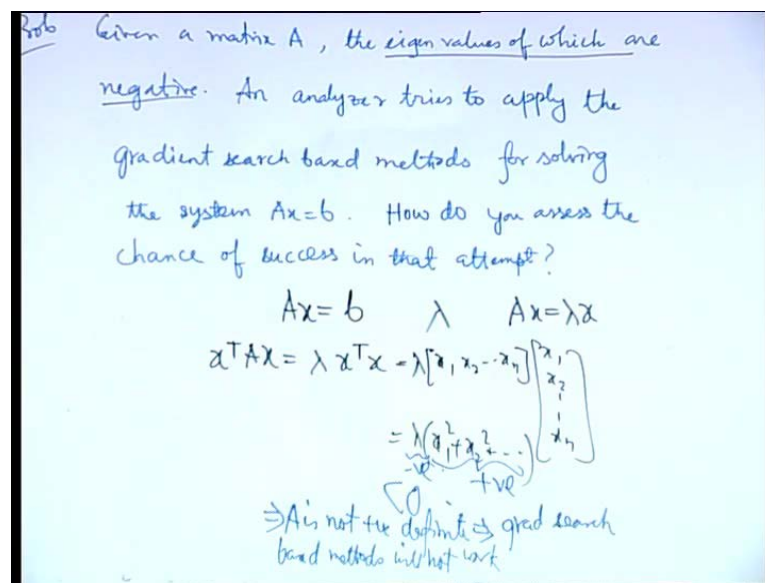 Prob Given a matrix A , the eigen values of which are
negative. An analyzer tries to apply the
gradient search based methods for solving
the system Ax=b . How do you assess the
chance of success in that attempt?
Ax= b λ Ax=λx
xᵀAx = λ xᵀx = λ[x₁ x₂ ... xₙ] [x₁ x₂ ⋮ xₙ]
= λ(x₁² + x₂² + ...)
-ve +ve
<0
⇒ A is not +ve definite ⇒ grad search
based methods will not work